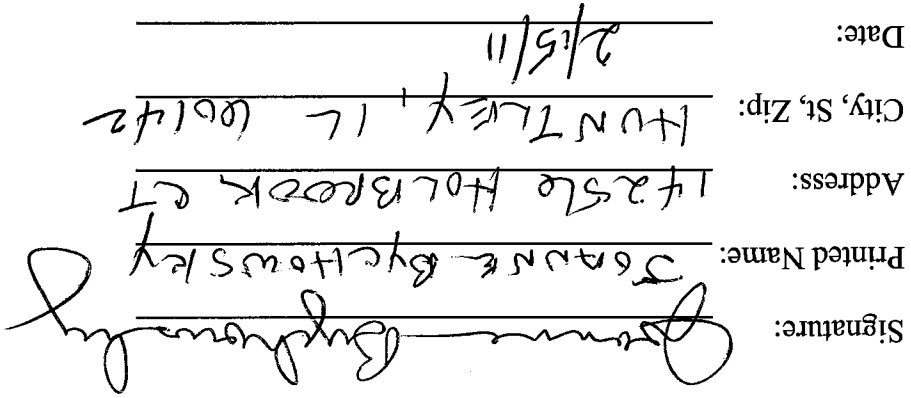 Signature: Joanne Bychowsky
Printed Name: JOANNE BYCHOWSKY
Address: 14256 HOLBROOK CT
City, St, Zip: HUNTLEY, IL 60142
Date: 2/15/11